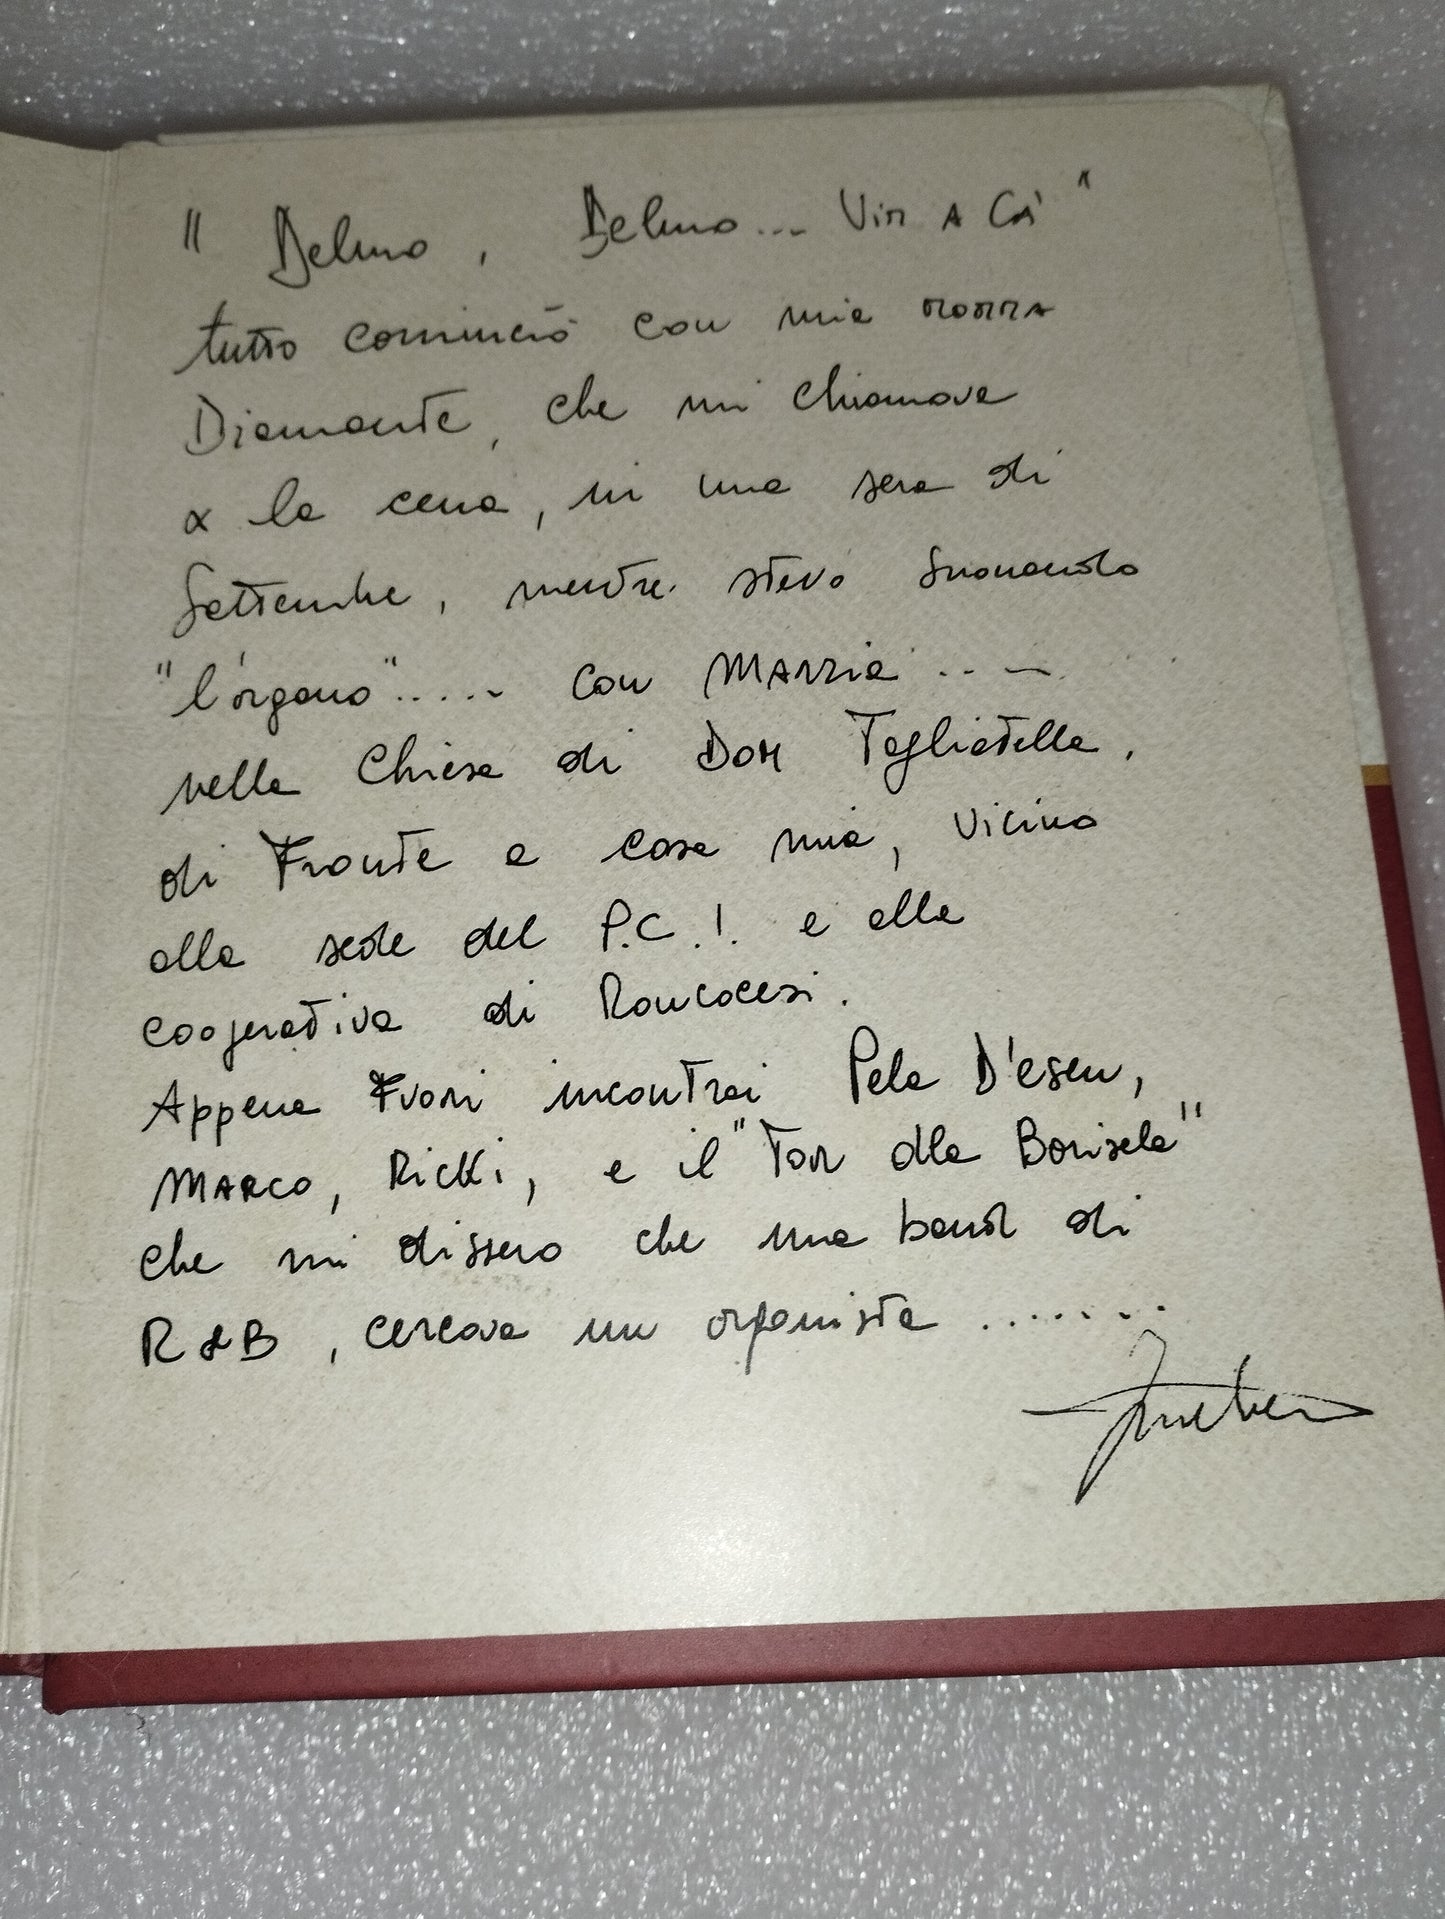 " Delmo, Delmo... Vin A Cà "
tutto cominciò con mia nonna
Diamante, che mi chiamava
x la cena, in una sera di
Settembre, mentre stavo suonando
"l'òrgano"..... con MARZIA.....
nella Chiesa di DON Tagliatella,
di Fronte a casa mia, vicino
alla sede del P.C.I. e alla
cooperativa di Roncocesi.
Appena Fuori incontrai Pela D'esen,
MARCO, Ricki, e il "Tor dla Borisela"
che mi dissero che una band di
R&B, cercava un organista ........
Zucchero